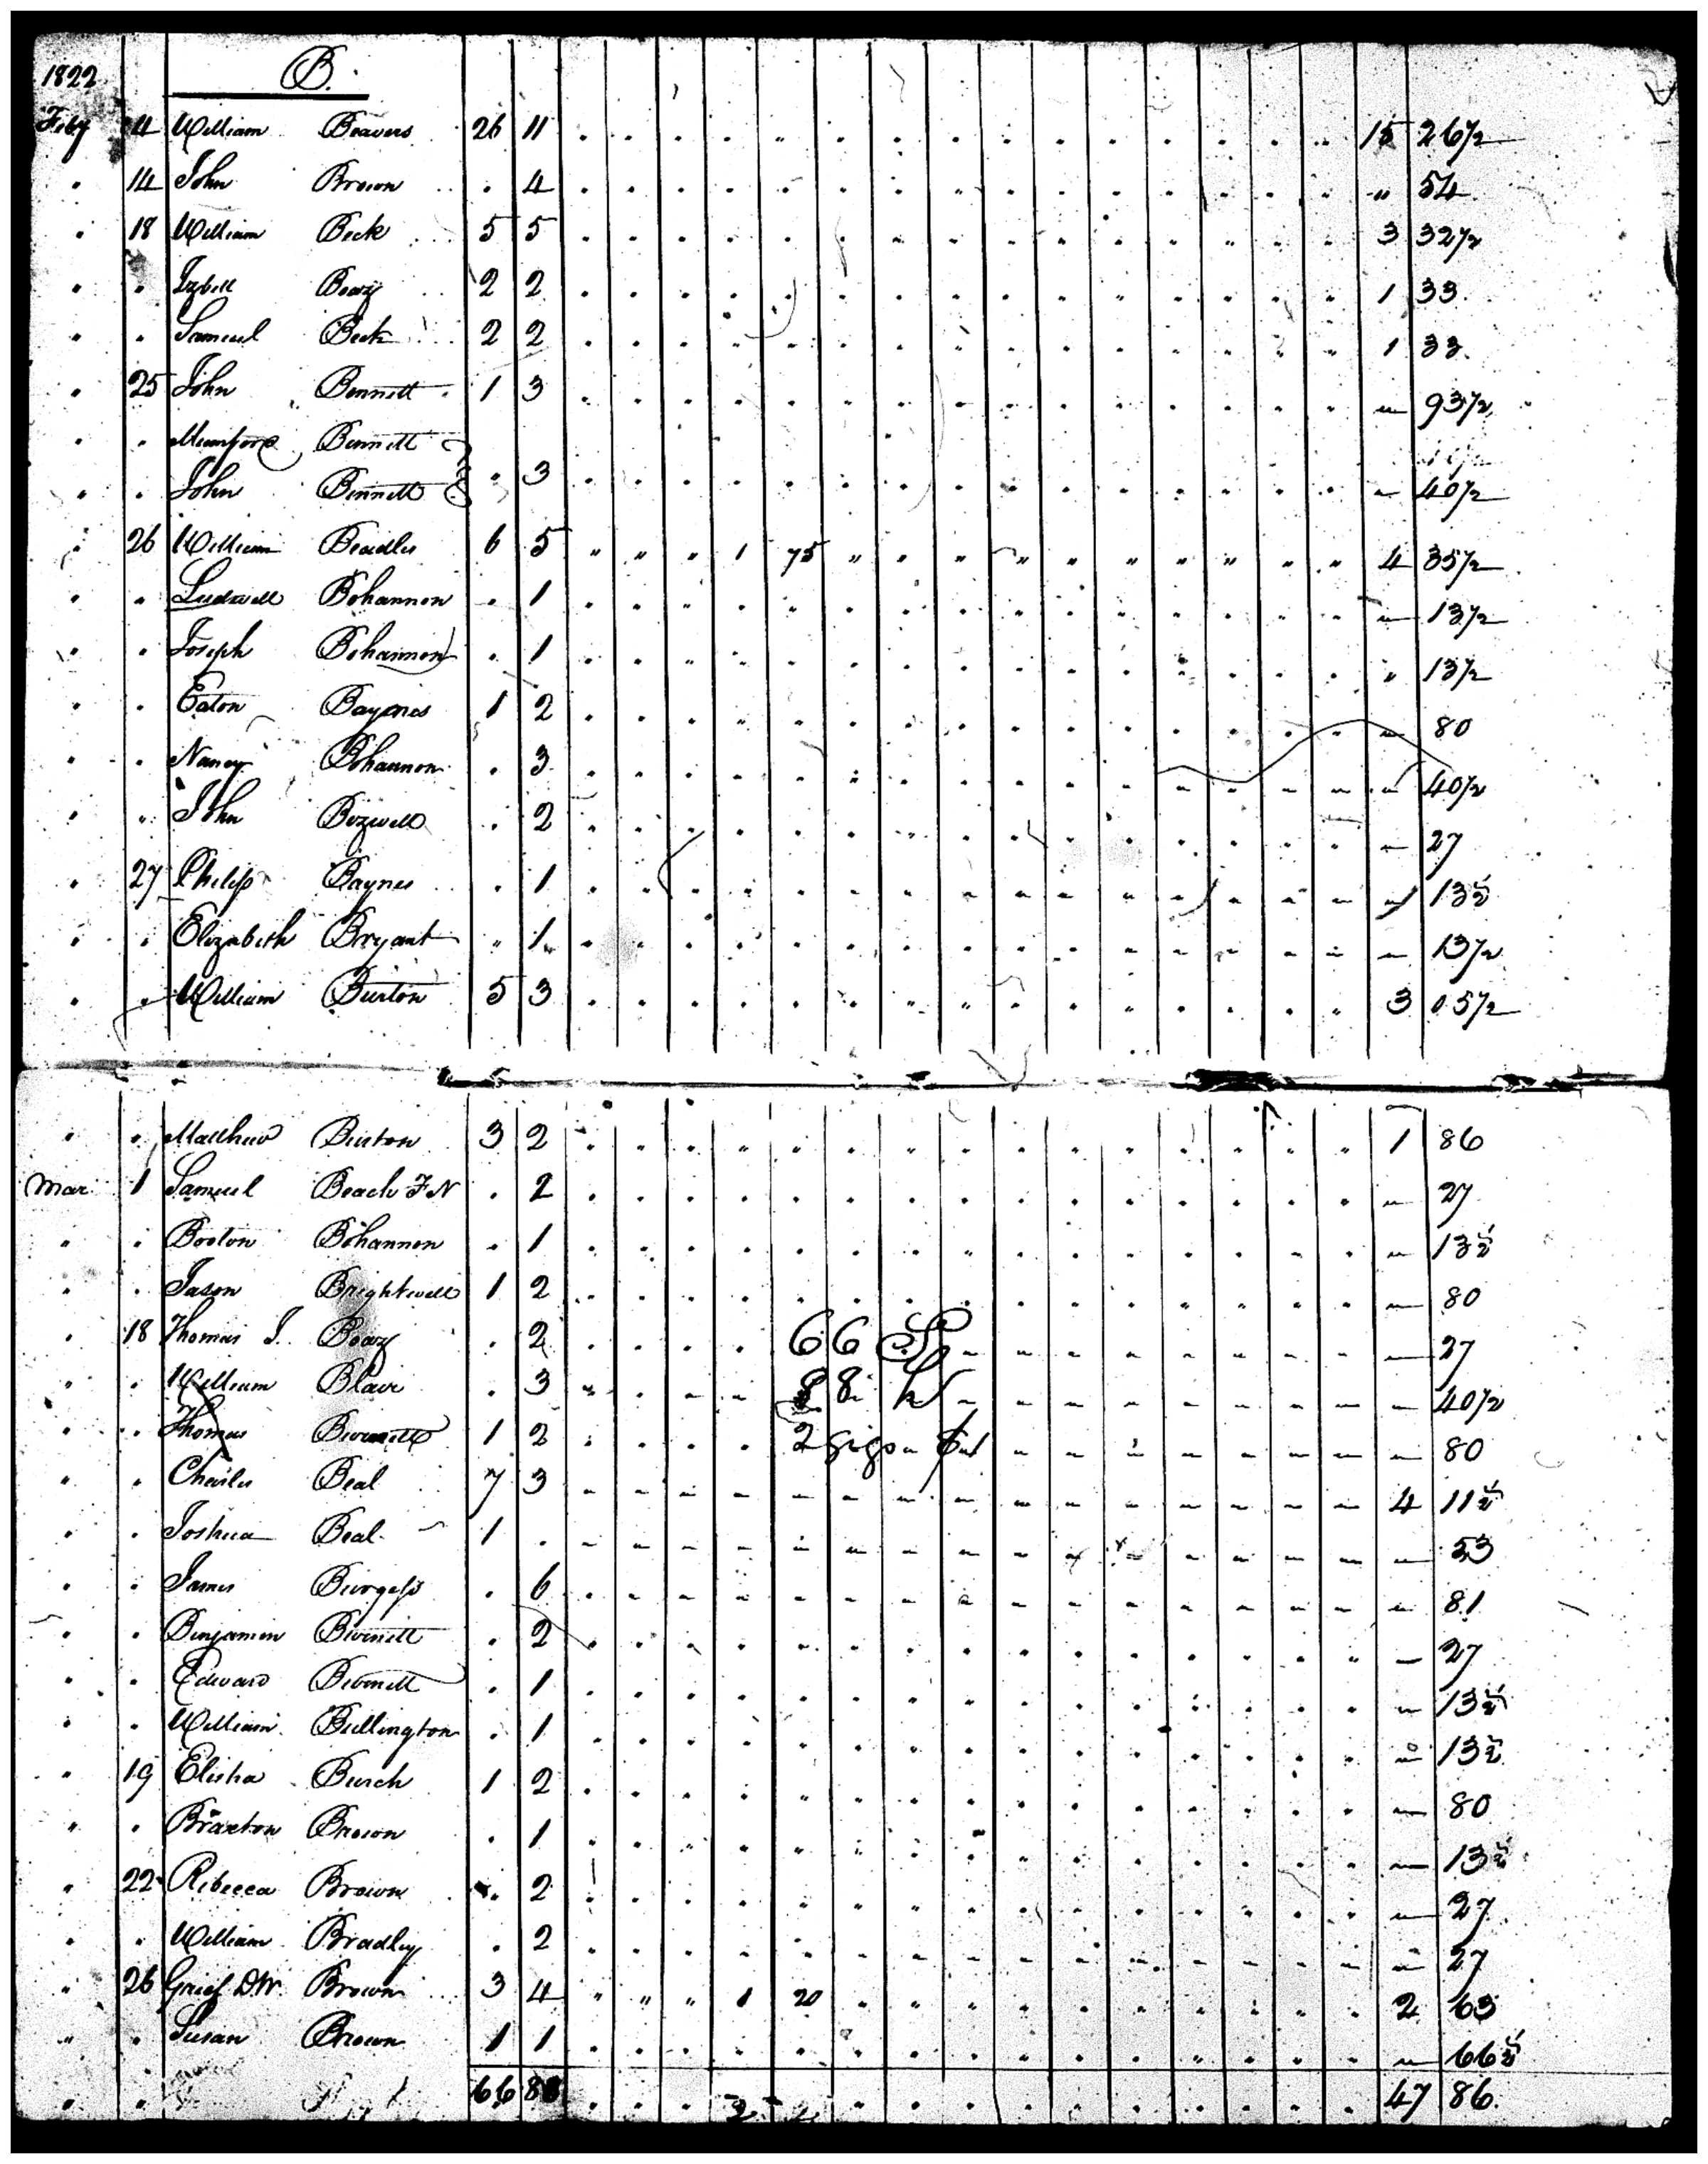 1822 B.
Feby 4 William Beavers 26 11 15 26 1/2
" 14 John Brown . 4 " 54
" 18 William Beck 5 5 3 32 1/2
" " Izbell Boaz 2 2 1 33
" " Samuel Beck 2 2 1 33
" 25 John Bennett 1 3 — 93 1/2
" " Mumford Bennett
" " John Bennett . 3 — 40 1/2
" 26 William Beadles 6 5 " " " 1 75 " " " " " " " " " " 4 35 1/2
" " Ludwell Bohannon . 1 — 13 1/2
" " Joseph Bohannon . 1 " 13 1/2
" " Eaton Baynes 1 2 — 80
" " Nancy Bohannon . 3 — 40 1/2
" " John Bozwell . 2 — 27
" 27 Philip Baynes . 1 " 13 1/2
" " Elizabeth Bryant " 1 — 13 1/2
" " William Burton 5 3 3 05 1/2
" " Matthew Burton 3 2 1 86
Mar 1 Samuel Beach F N . 2 — 27
" " Boston Bohannon . 1 — 13 1/2
" " Jason Brightwell 1 2 — 80
" 18 Thomas J. Boaz . 2 66 S — 27
" " William Blair . 3 88 h — 40 1/2
" " Thomas 1 2 2 gigs — 80
" " Charles Beal 7 3 4 11 1/2
" " Joshua Beal 1 . — 53
" " James Burgess . 6 — 81
" " Benjamin . 2 — 27
" " Edward . 1 — 13 1/2
" " William Bullington . 1 — 13 1/2
" 19 Elisha Burch 1 2 — 80
" " Braxton Brown . 1 — 13 1/2
" 22 Rebecca Brown . 2 — 27
" " William Bradley . 2 — 27
" 26 Grief D.W. Brown 3 4 " " " 1 20 2 63
" " Susan Brown 1 1 — 66 1/2
66 88 2 47 86